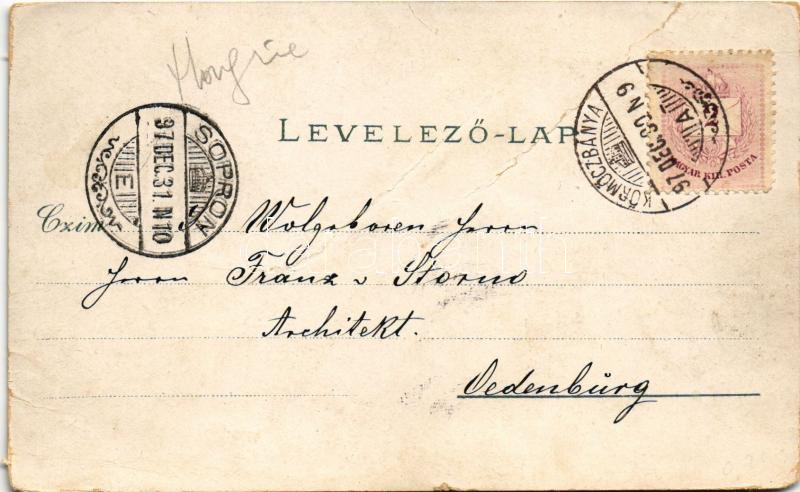 Hongrie
LEVELEZŐ-LAP
SOPRON
97 DEC. 31. N 10
E
KÖRMÖCZBÁNYA
97 DEC. 30 N 9
A
MAGYAR KIR. POSTA
Czim
Wolgeboren Herrn
Herrn Franz v Storno
Architekt.
Oedenburg